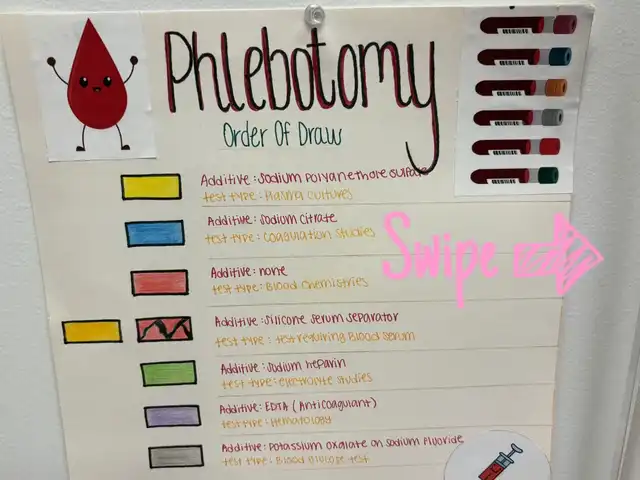 Phlebotomy
Order Of Draw
Additive: Sodium Polyanethole Sulfate
test type: Plasma Cultures
Additive: Sodium Citrate
test type: Coagulation Studies
Swipe
Additive: none
test type: Blood Chemistries
Additive: Silicone serum separator
test type: test requiring Blood Serum
Additive: Sodium heparin
test type: electrolyte studies
Additive: EDTA (Anticoagulant)
test type: Hematology
Additive: Potassium Oxalate on Sodium Fluoride
test type: Blood Glucose test